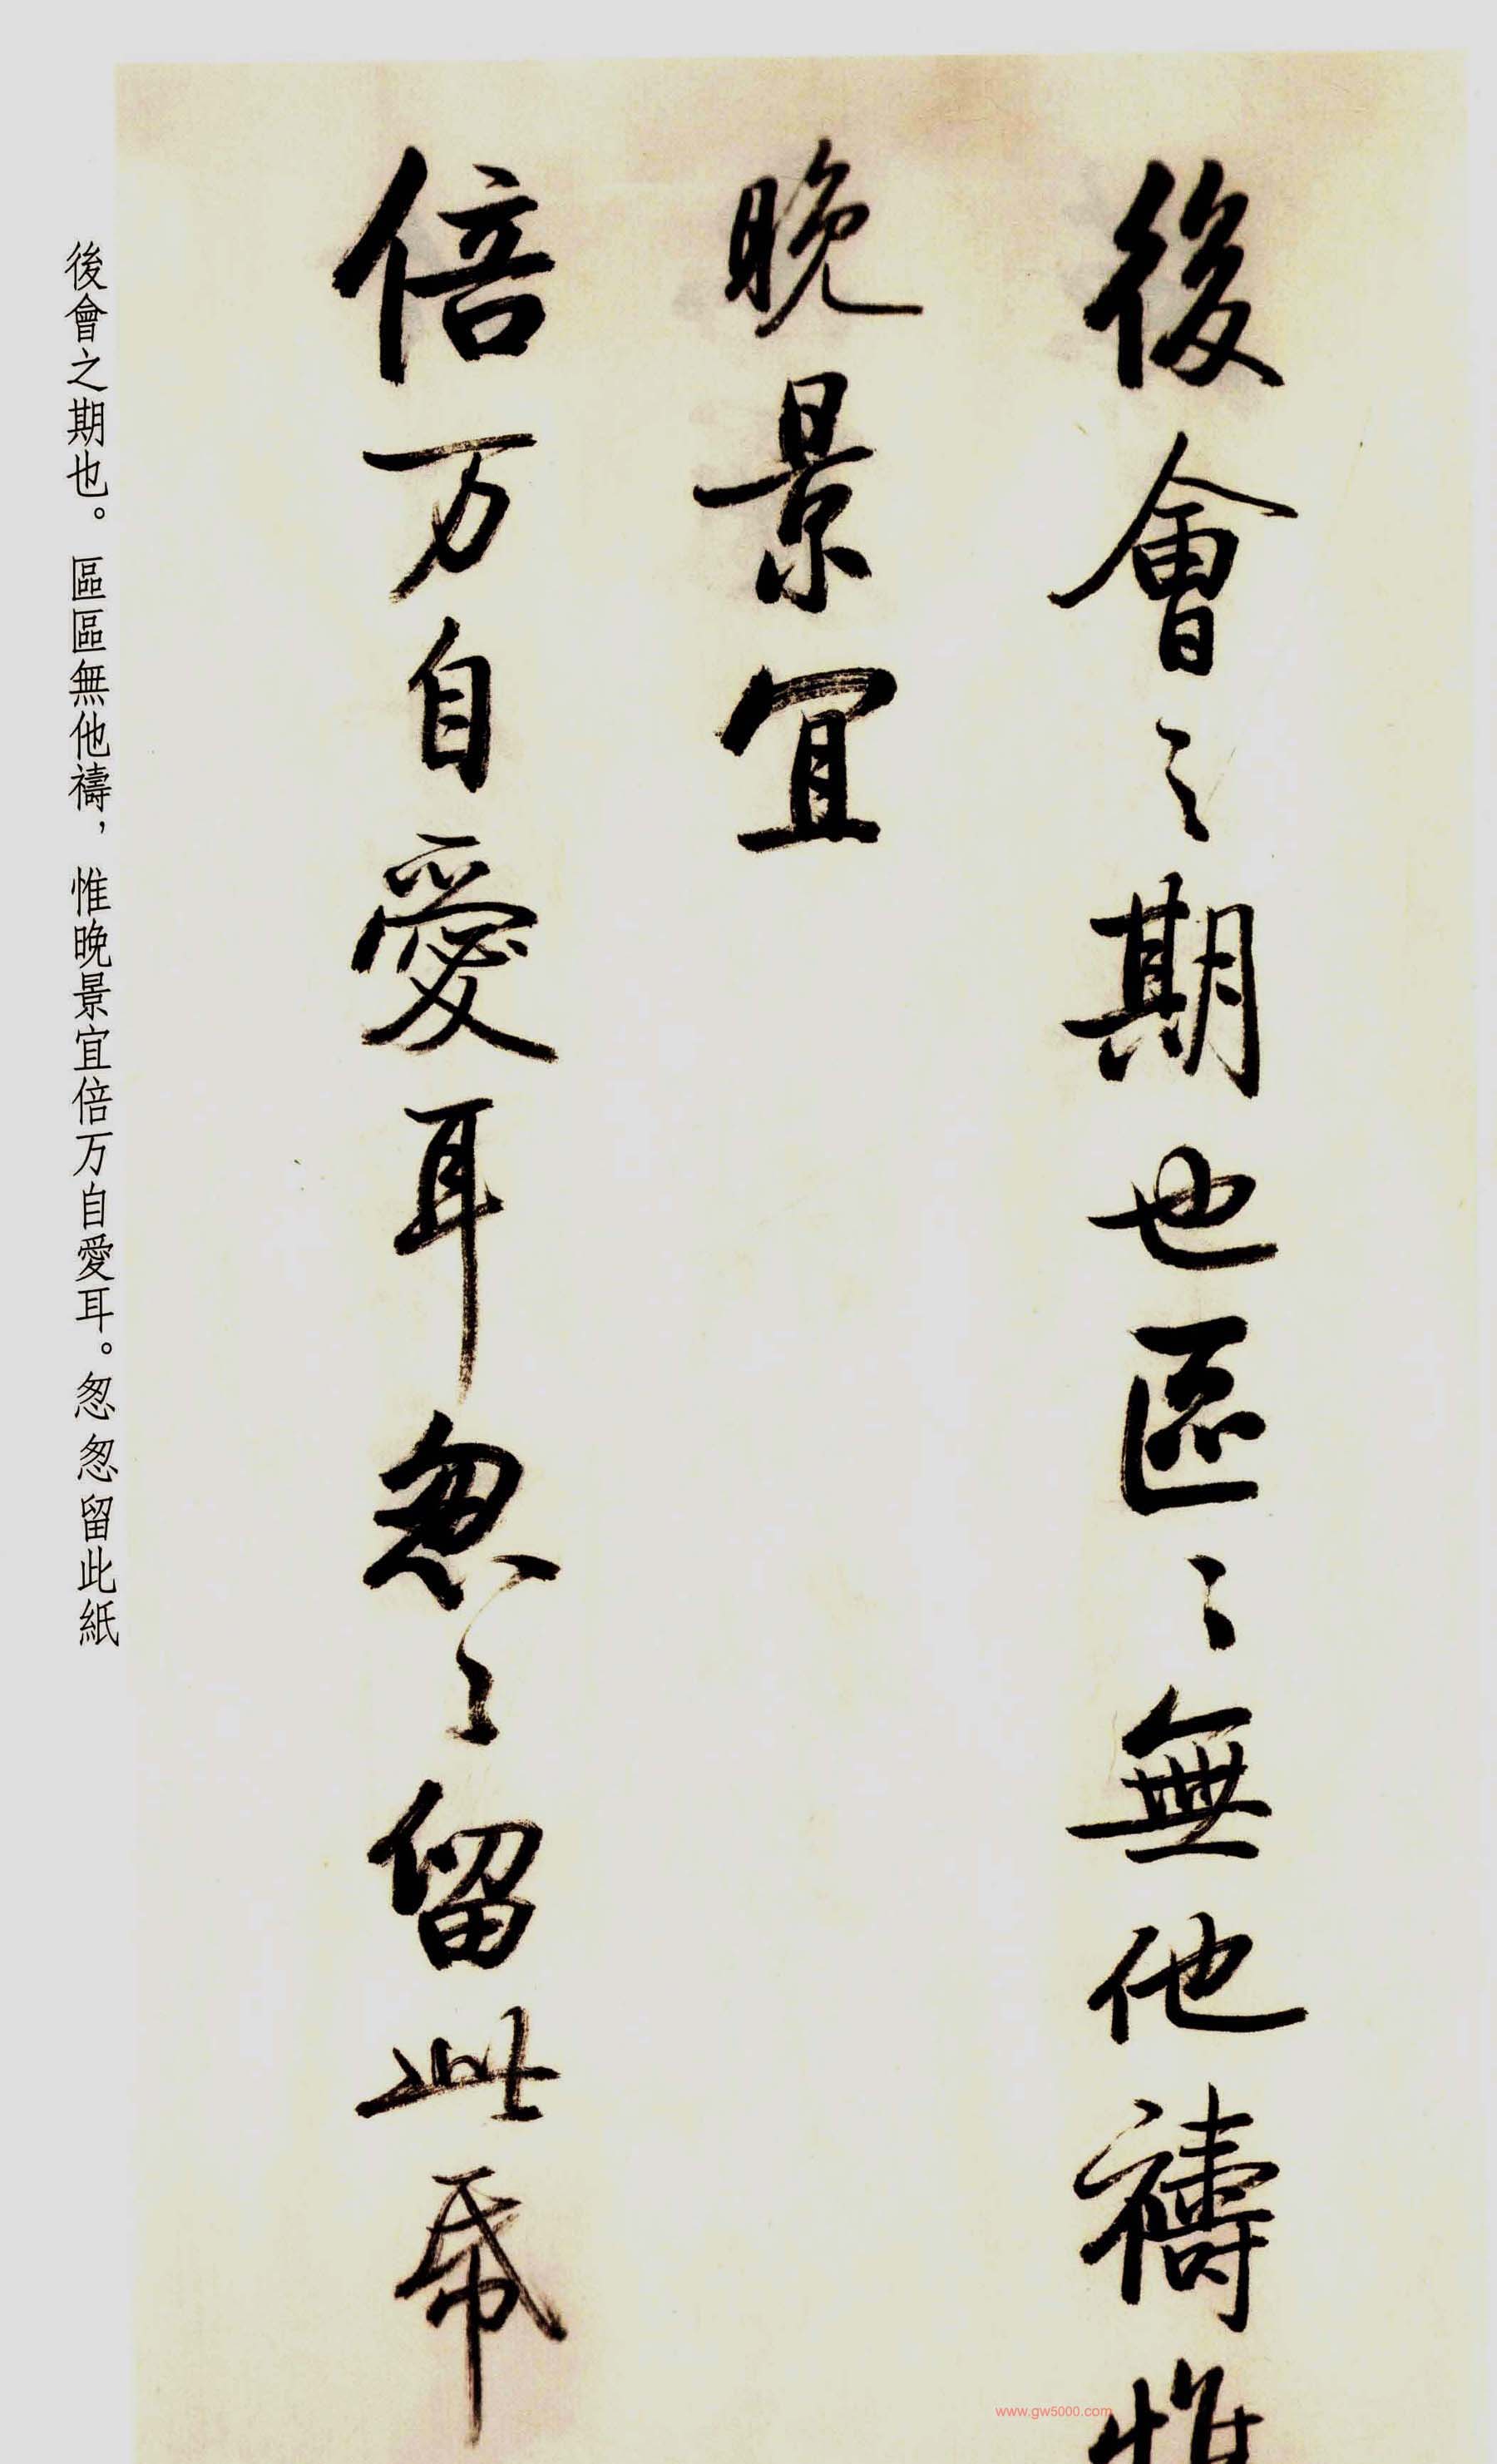 後會之期也區〻無他禱惟
晚景宜
倍万自愛耳怱〻留此帋
後會之期也。區區無他禱，惟晚景宜倍万自愛耳。怱怱留此紙
www.gw5000.com